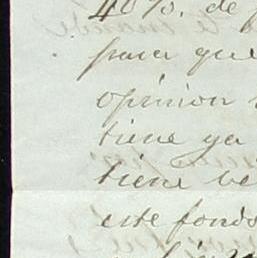 40%. de
para que
opinion
tiene ya
tiene
este fondo